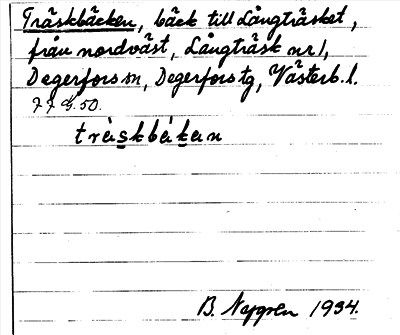 Träskbäcken, bäck till Långträsket,
från nordväst, Långträsk nr 1,
Degerfors sn, Degerfors tg, Västerb. l.
träskbäken
B. Nygren 1934.